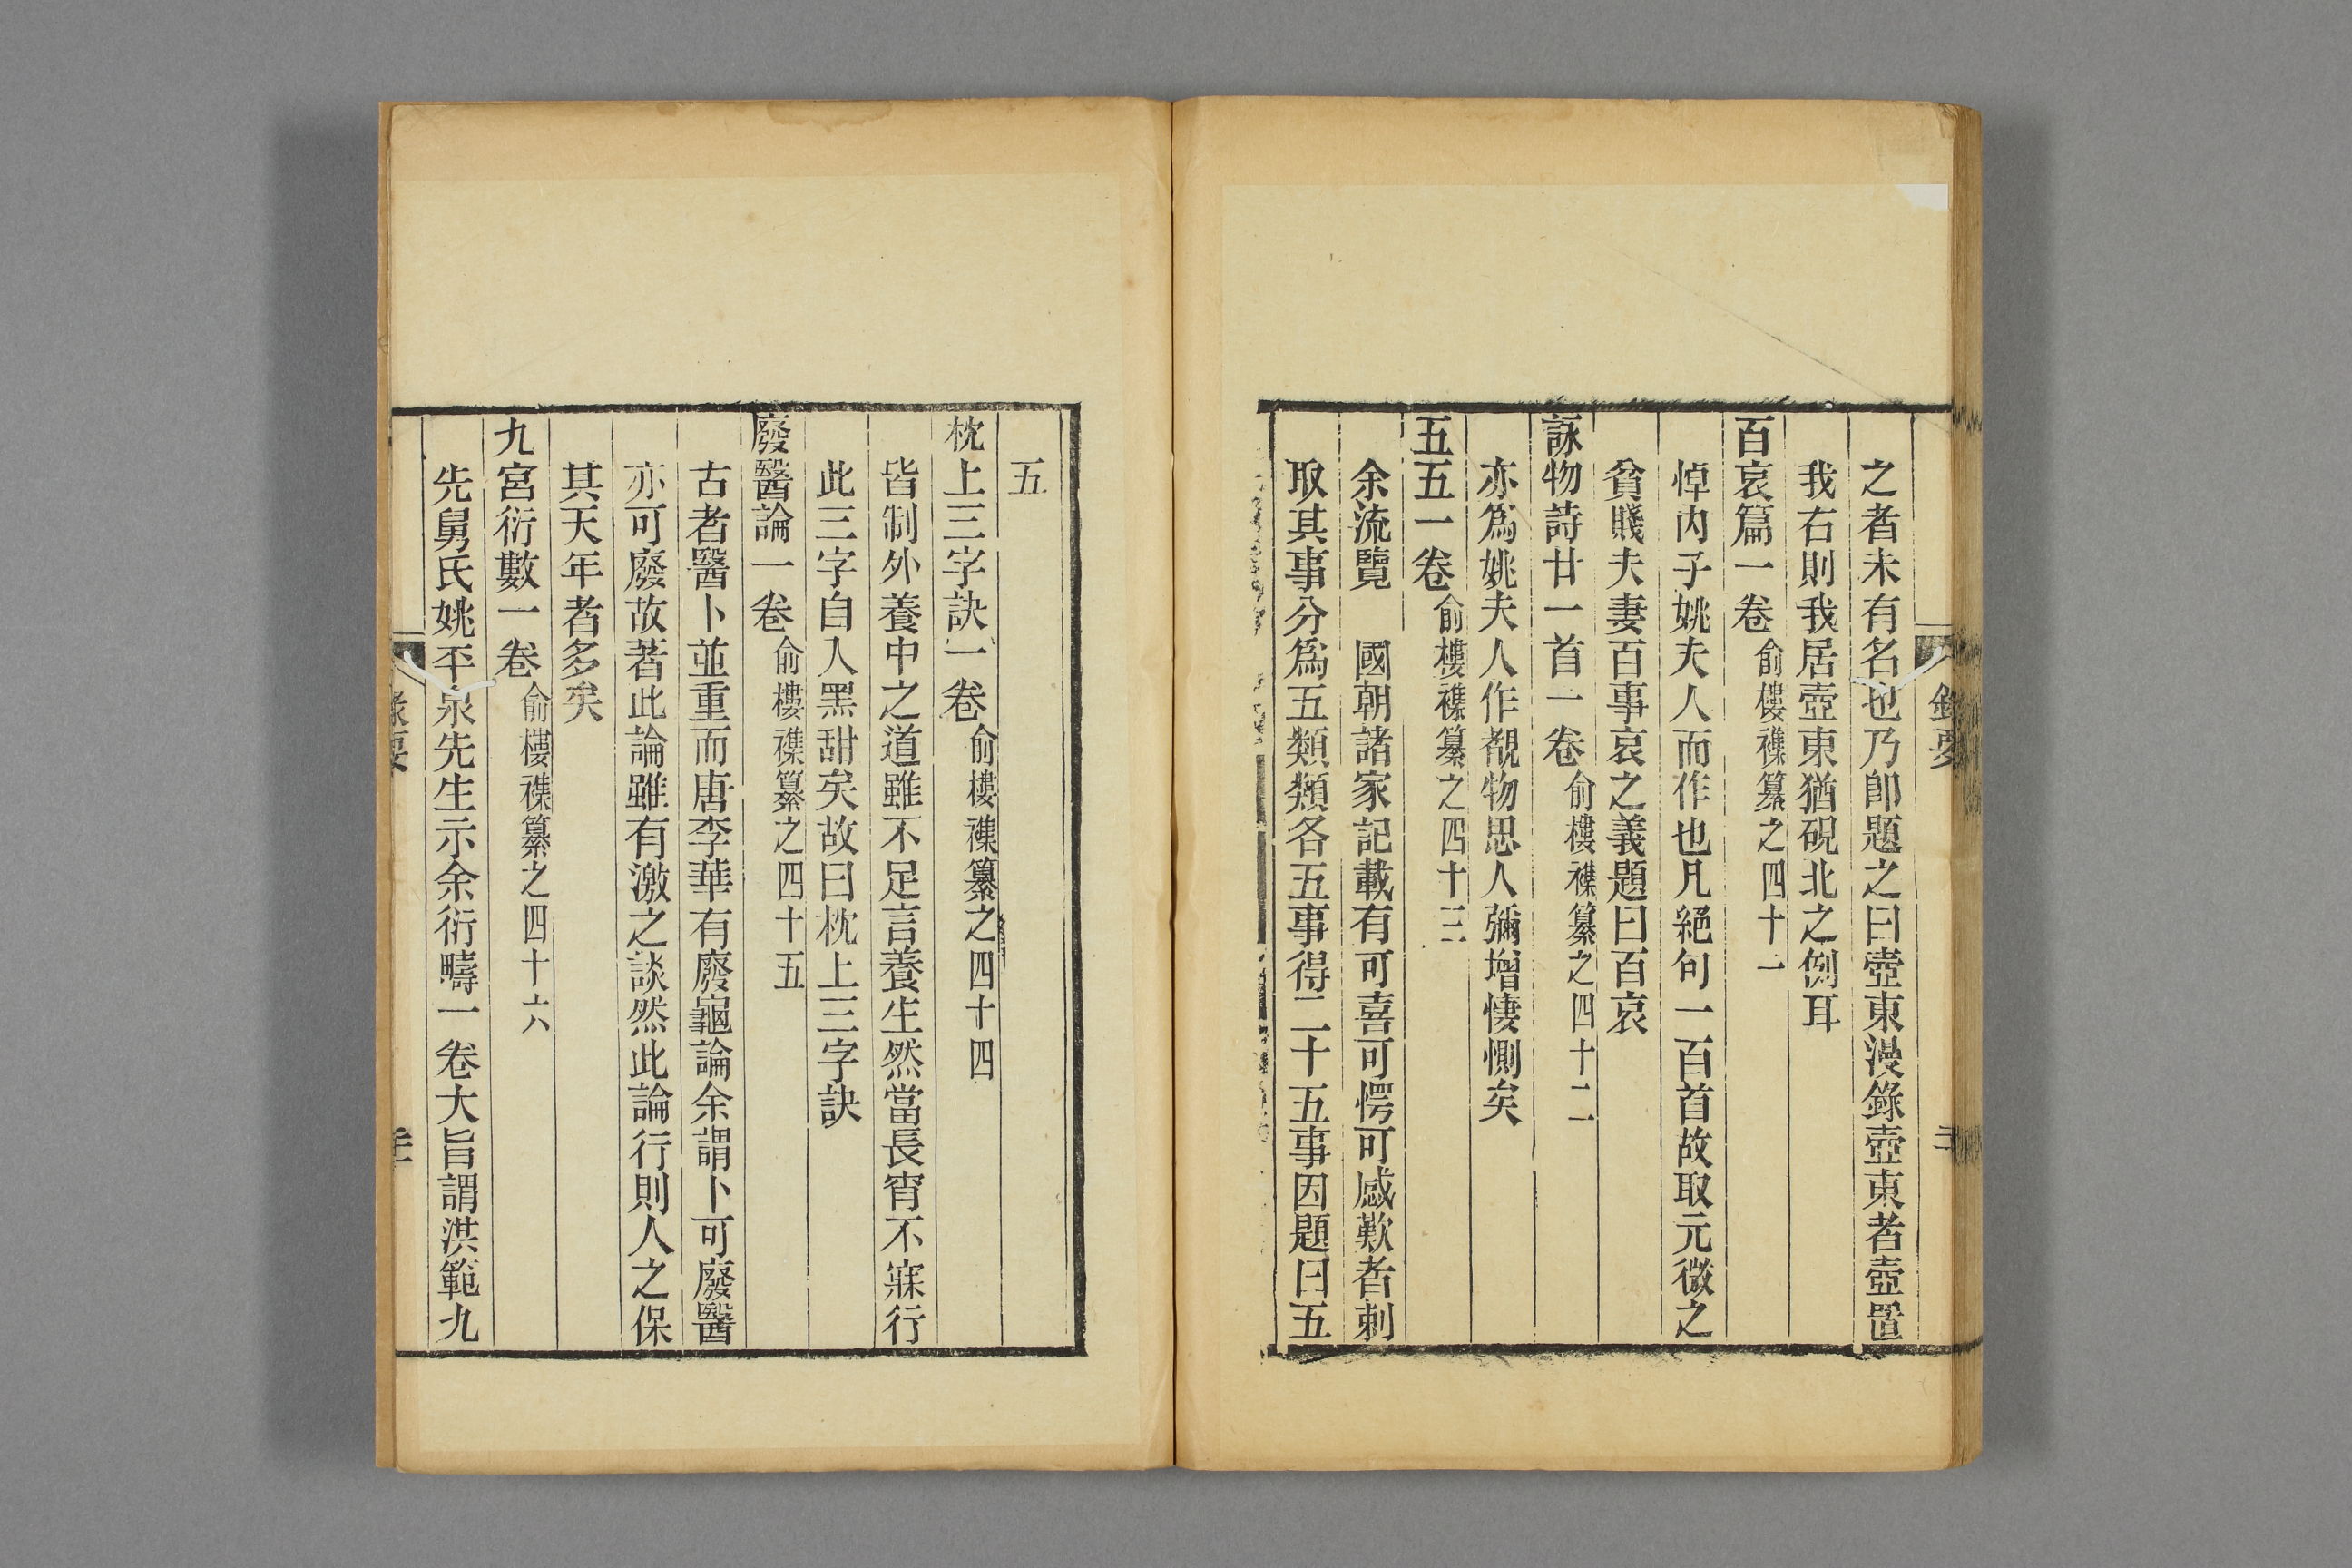 錄要
之者未有名也乃卽題之曰壺東漫錄壺東者壺置
我右則我居壺東猶硯北之例耳
百哀篇一卷俞樓襍纂之四十一
悼内子姚夫人而作也凡絕句一百首故取元微之
貧賤夫妻百事哀之義題曰百哀
詠物詩廿一首一卷俞樓襍纂之四十二
亦爲姚夫人作覩物思人彌增悽惻矣
五五一卷俞樓襍纂之四十三
余流覽　國朝諸家記載有可喜可愕可感歎者刺
取其事分爲五類類各五事得二十五事因題曰五
五
枕上三字訣一卷俞樓襍纂之四十四
皆制外養中之道雖不足言養生然當長宵不寐行
此三字自入黑甜矣故曰枕上三字訣
廢醫論一卷俞樓襍纂之四十五
古者醫卜並重而唐李華有廢龜論余謂卜可廢醫
亦可廢故著此論雖有激之談然此論行則人之保
其天年者多矣
九宮衍數一卷俞樓襍纂之四十六
先舅氏姚平泉先生示余衍疇一卷大旨謂洪範九
錄要